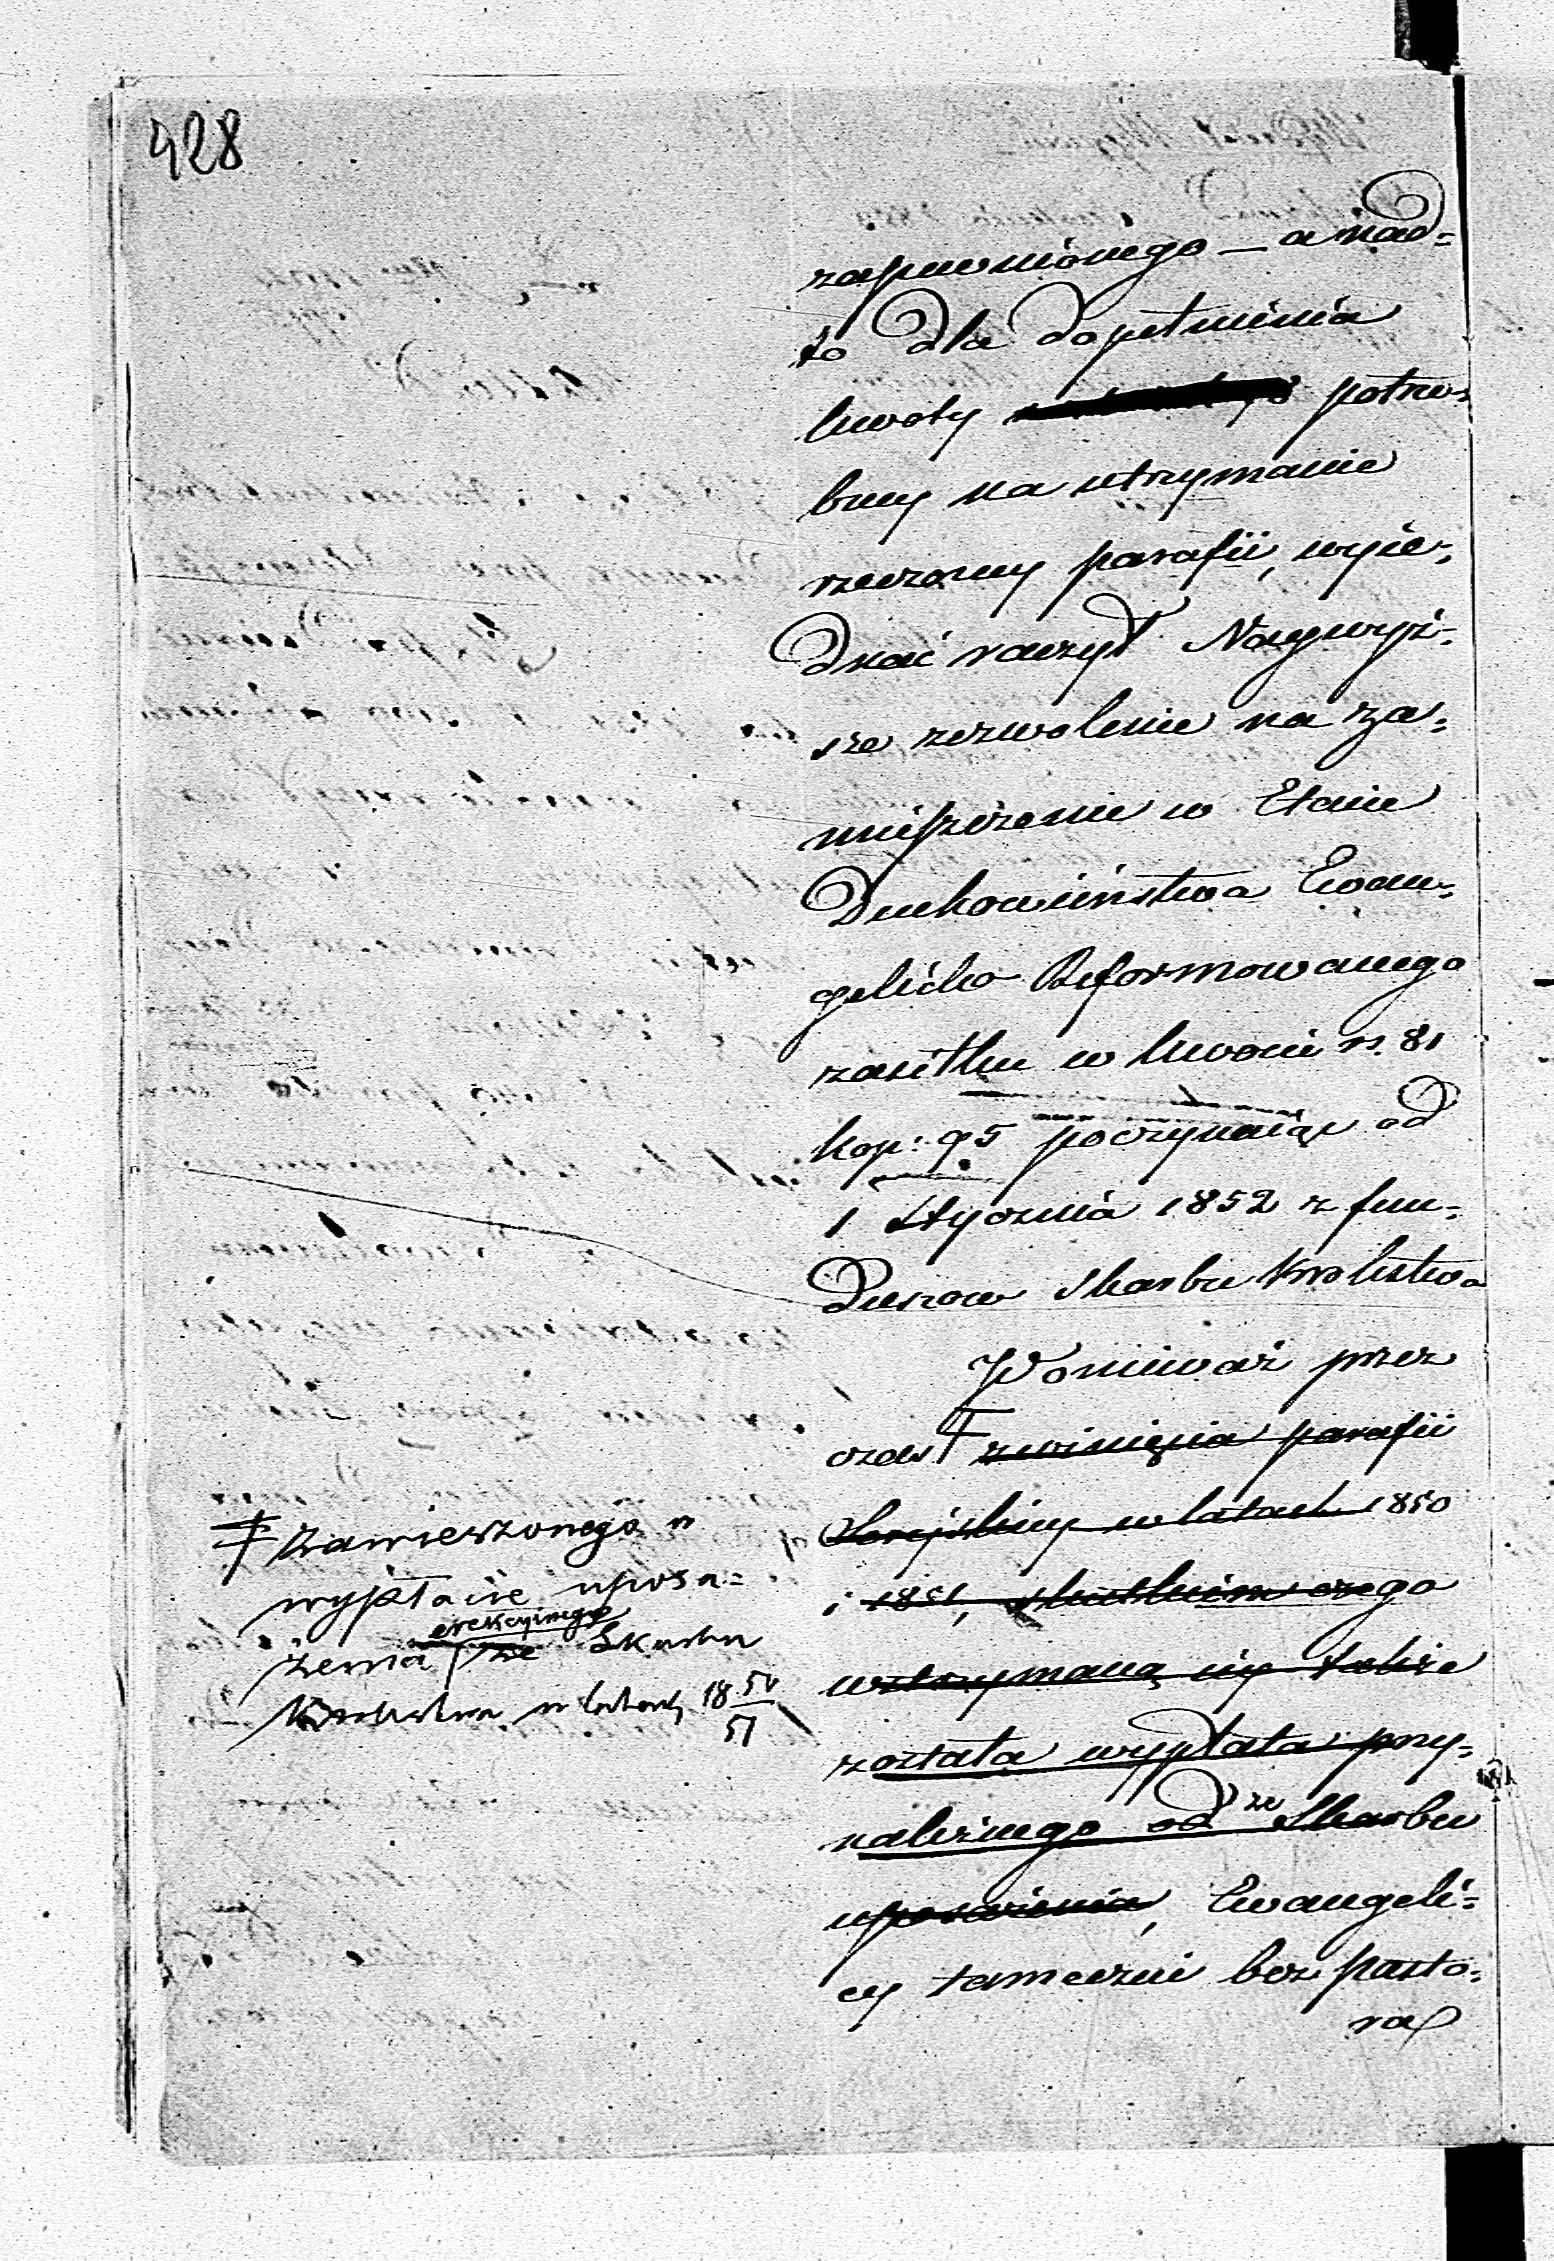 428
zapewnionego — a nad=
to dla dopełnienia
kwoty potrze=
bney na utrzymanie
rzeczoney parafii, wyje=
dnać raczył Naywyż=
sze zezwolenie na za=
mieszczenie w Etacie
Duchowieństwa Ewan=
gelicko Reformowanego
zasiłku w kwocie rs. 81
kop: 95 poczynając od
1 Stycznia 1852 z fun=
duszow Skarbu Krolestwa
Ponieważ przez
czas zwinięcia parafii
w latach 1850
i 1851, skutkiem czego
wstrzymaną též
została wypłata przy=
należnego od ze Skarbu
uposażenia, Ewangeli=
cy tameczni bez pasto=
ra
zawieszonego w
wypłacie uposa=
żenia erekcyinego ze Skarbu
Krolestwa w latach 18 50/51